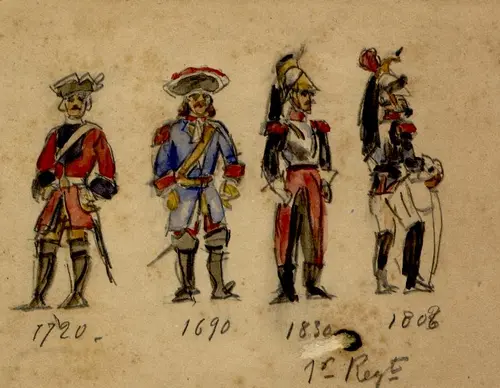 1720.
1690.
1830
1808
1er Regt